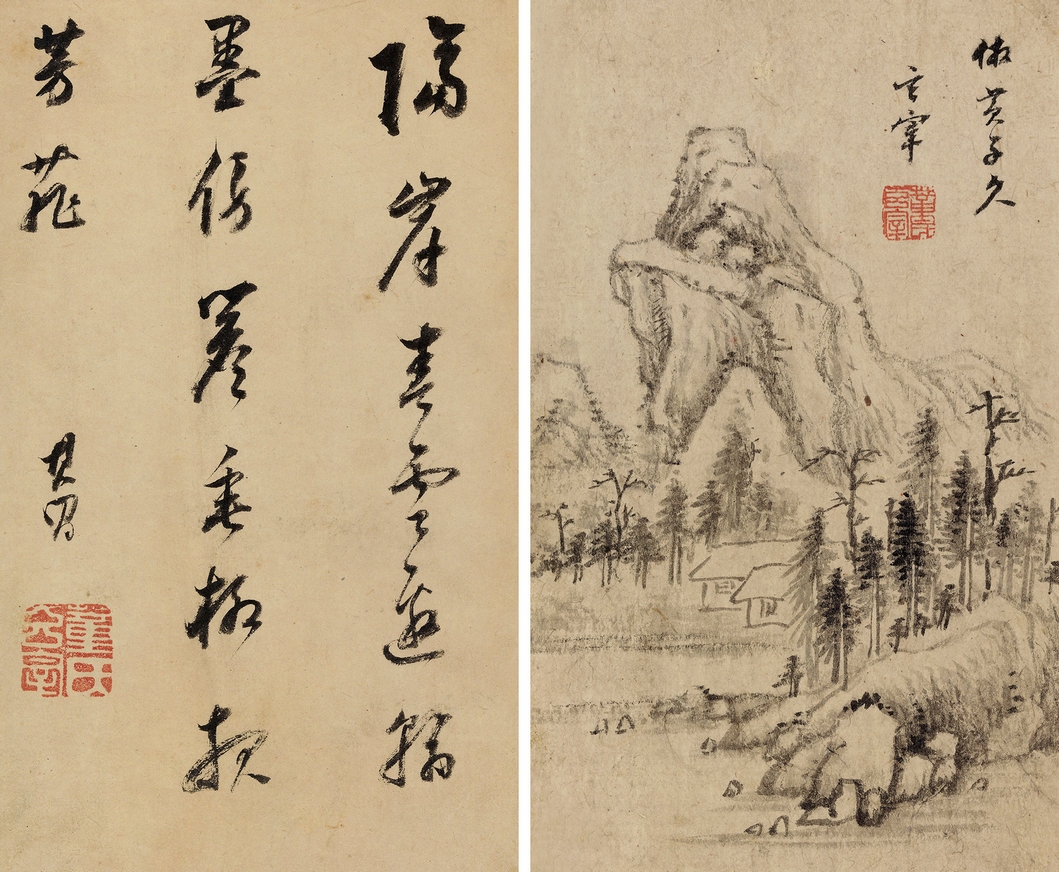 倣黃子久
玄宰
董氏玄宰
隔岸春雲邀翰
墨傍簷垂柳報
芳菲
其昌